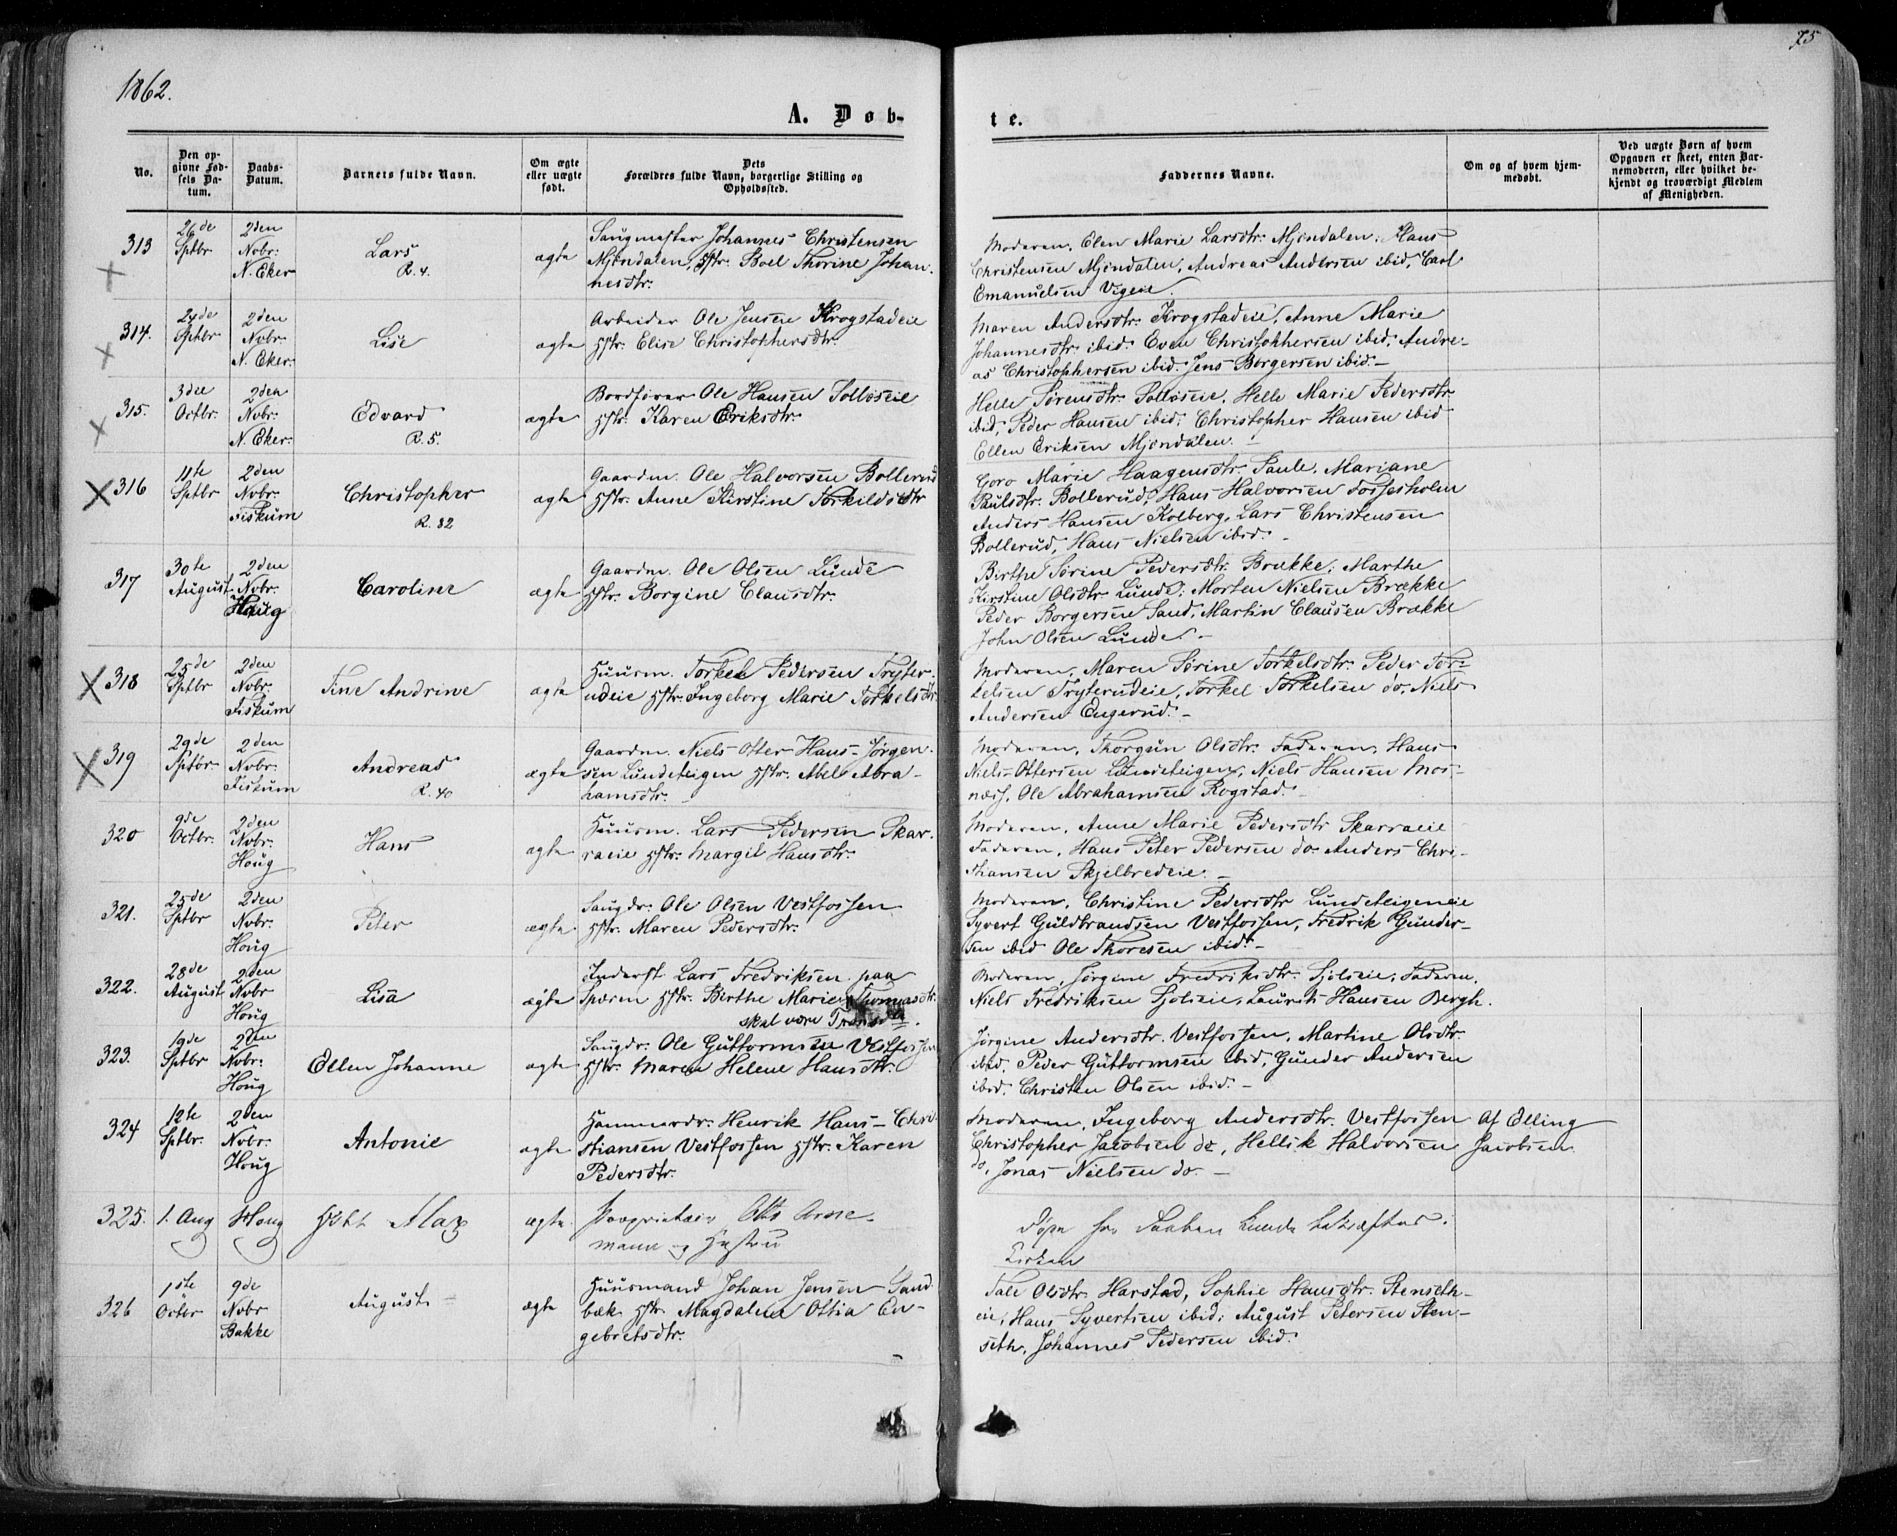 1862.
75
A. Døb-
te.
No.
Den opgivne Fødsels Datum.
Daabs-Datum.
Barnets fulde Navn.
Om ægte eller uægte født.
Dets Forældres fulde Navn, borgerlige Stilling og Opholdssted.
Faddernes Navne.
Om og af hvem hjemmedøbt.
Ved uægte Børn af hvem Opgaven er skeet, enten Barnemoderen, eller hvilket bekjendt og troværdigt Medlem af Menigheden.
313 26de Sptbr 2den Novbr: N. Eker Lars R. 4. ægte
Saugmester Johannes Christensen
Mjøndalen, Hstr. Boel Thorine Johan-
nesdtr.
Moderen, Elen Marie Larsdtr. Mjøndalen, Hans
Christensen Mjøndalen, Andreas Andersen ibid, Carl
Emanuelsen Vegeie.
314. 24de Sptbr 2den Novbr: N. Eker. Lise ægte
Arbeider Ole Jensen Krogstadeie
Hstr. Elise Christophersdtr.
Maren Andersdtr. Krogstadeie, Anne Marie
Johannesdtr. ibid. Even Christophersen ibid, Andre-
as Christophersen ibid. Jens Borgersen ibid. -
315. 3die Octbr. 2den Nvbr: N. Eker: Edvard R. 5. ægte
Bordfører Ole Hansen Solloseie
Hstr. Karen Eriksdtr.
Helle Sørensdtr. Solloseie, Helle Marie Pedersdtr.
ibid, Peder Hansen ibid; Christopher Hansen ibid
Ellen Eriksen Mjøndalen. -
316 4te Sptbr 2den Nvbr. Fiskum Christopher R. 82 ægte
Gaardm. Ole Halvorsen Bollerud
Hstr. Anne Kirstine Torkildsdtr
Goro Marie Haagensdtr. Saule, Mariane
Paulsdtr. Bollerud, Hans Halvorsen Fossesholm
Anders Hansen Kolberg, Lars Christensen
Bollerud, Hans Nielsen ibid. -
317 30te August 2den Nvbr: Houg Caroline ægte
Gaardm. Ole Olsen Lunde
Hstr. Borgine Clausdtr.
Birthe Sørine Pedersdtr. Brække, Marthe
Kirstine Olsdtr. Lunde; Morten Nielsen Brække
Peder Borgersen Sand, Martin Clausen Brække
John Olsen Lunde. -
318 25de Sptbr 2den Nvbr. Fiskum Tine Andrine ægte
Huusm. Torkel Pedersen Tryter-
udeie Hstr. Ingeborg Marie Torkelsdtr.
Moderen, Maren Sørine Torkelsdtr. Peder Tor-
kelsen Tryterudeie, Torkel Torkelsen do, Niels
Andersen Engerud. -
319 29de Sptbr. 2den Nvbr: Fiskum Andreas R. 40 ægte
Gaardm. Niels Otter Hans- Jørgen-
sen Lundeteigen Hstr. Abel Abra-
hamsdtr.
Moderen, Thorgun Olsdtr. Faderen, Hans
Niels-Ottersen Lundeteigen, Niels Hansen Mos-
næss, Ole Abrahamsen Rogstad. -
320 9de Octbr. 2den Nvbr: Houg Hans ægte
Huusm. Lars Pedersen Skar-
raeie Hstr. Margit Hansdtr.
Moderen, Anne Marie Pedersdtr Skarraeie
Faderen, Hans Peter Pedersen do. Anders Chri-
stiansen Skjelbredeie. -
321. 25de Sptbr 2den Nvbr: Houg Peter ægte
Saugdr. Ole Olsen Vestfossen
Hstr. Maren Pedersdtr.
Moderen, Christine Pedersdtr Lundeteigeneie
Syvert Guldbrandsen Vestfossen, Fredrik Gunder-
sen ibid Ole Thoresen ibid. -
322. 28de August 2den Nvbr Houg Lisa ægte
Inderst Lars Fredriksen paa
Spæren Hstr. Birthe Marie Thomasdtr.
skal være
Moderen, Jørgine Fredriksdtr. Fjolseie, Faderen.
Niels Fredriksen Fjolseie, Laurits Hansen Bergh.
323. 19de Sptbr 2den Nvbr: Houg Ellen Johanne ægte
Saugdr. Ole Guttormsen Vestfossen
Hstr. Maren Helene Hansdtr.
Jørgine Andersdtr. Vestfossen, Martine Olsdtr.
ibid, Peder Guttormsen ibid, Gunder Andersen
ibid. Christen Olsen ibid. -
324 12te Sptbr. 2den Nvbr: Houg Antonie ægte
Hammerdr. Henrik Hans-Chri-
stiansen Vestfossen Hstr. Karen
Pedersdtr.
Moderen, Ingeborg Andersdtr. Vestfossen
Christopher Jacobsen do, Hellik Halvorsen
do, Jonas Nielsen do. -
Af Elling
Jacobsen
325. 1. Aug Houg Max ægte
Proprietair Otto Arne-
mann og Hustru
326 1ste Octbr 9de Nvbr Bakke August - ægte
Huusmand Johan Jensen Sand-
bæk Hstr. Magdalene Ottia En-
gebretsdtr.
Tale Olsdtr. Harstad, Sophie Hansdtr. Stenseth-
eie, Hans Syvertsen ibid; August Petersen Sten-
seth, Johannes Pedersen ibid.